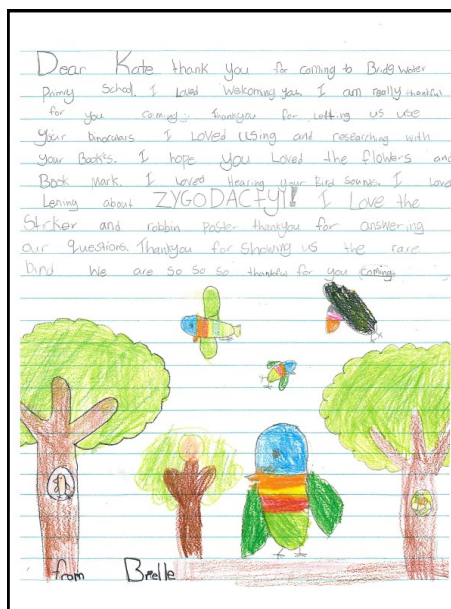 Dear Kate thank you for coming to Bridg Water
Primry School. I Loved Welcoming you. I am really thankful
for you coming. Thankyou for Letting us use
your Binoculars I Loved Using and researching with
your Books. I hope you Loved the flowers and
Book Mark. I Loved Hearing your Bird Sounds. I Loved
Lening about ZYGODACTYl! I Love the
Sticker and robbin Poster thankyou for answering
air Questions. Thankyou for Showing us the rare
bird We are so so so thankful for you coming.
from Brielle